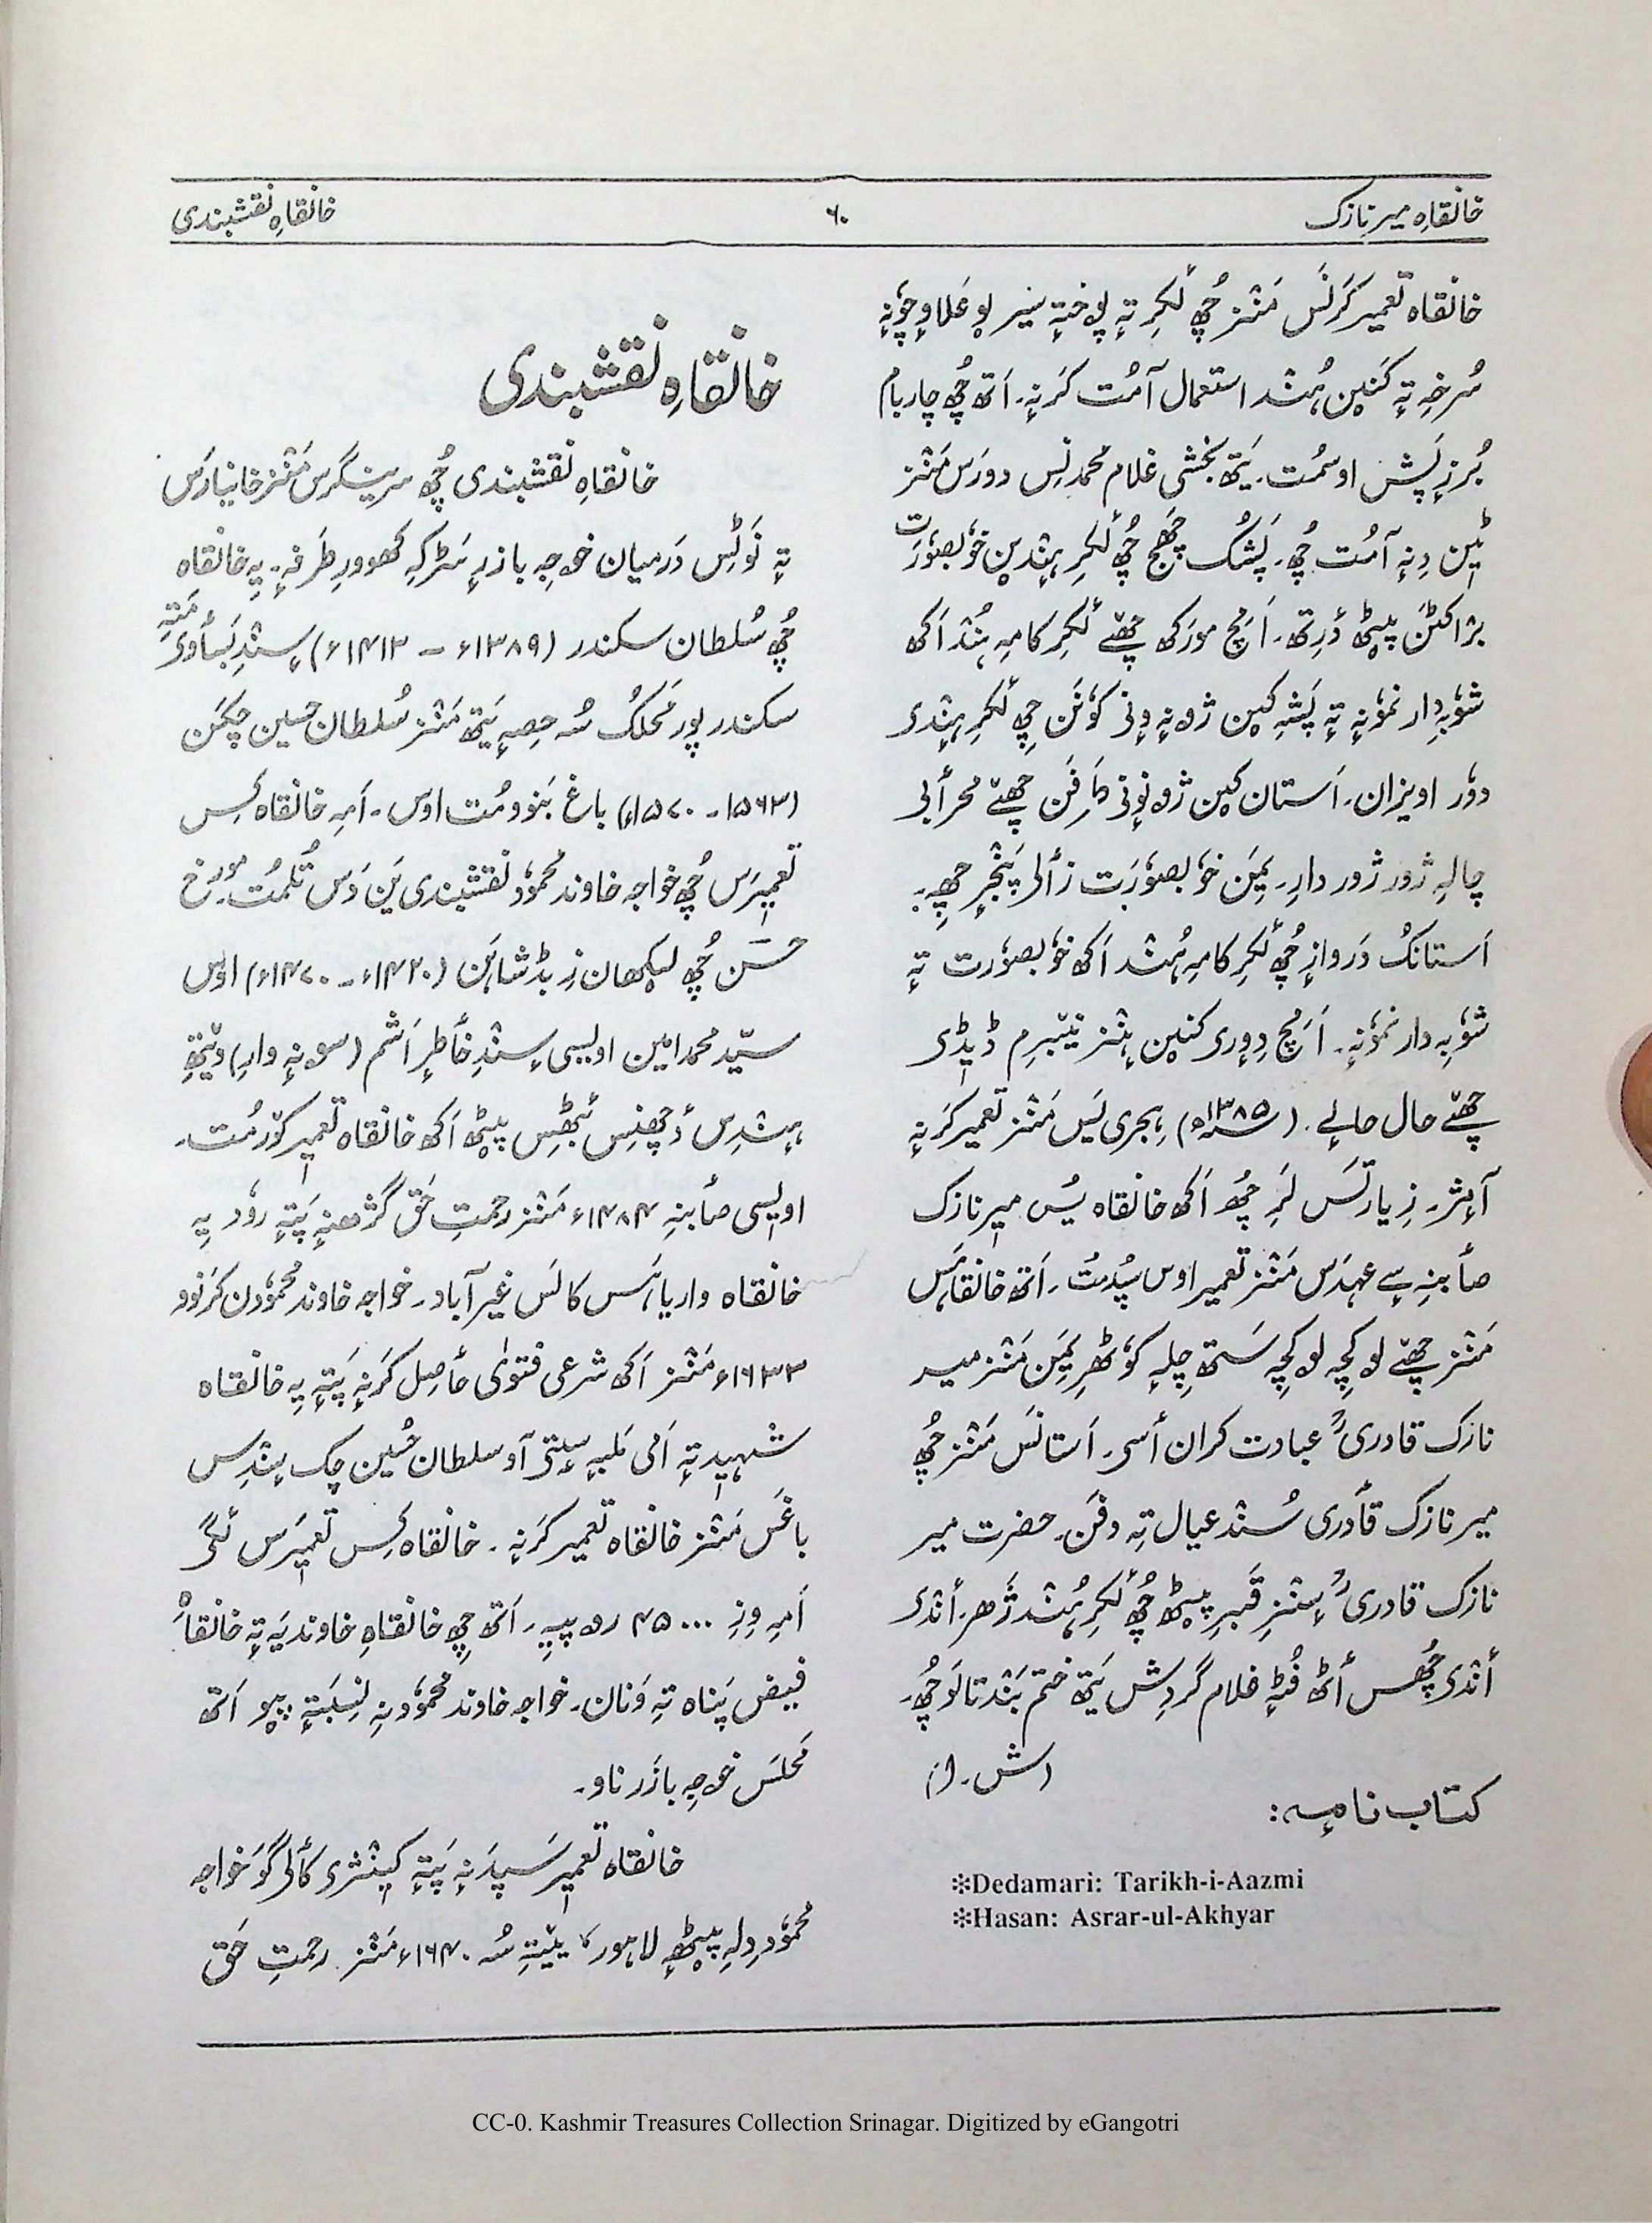 خانقاہِ میر نازک
۶۰
خانقاہِ نقشبندی
خانقاہ تعمیر کَرنَس مَنٛز چُھ لٔکرِ تہٕ پوختہٕ سیرِ علاوٕ چوٗنہٕ
سُرخہِ تہٕ کَنین ہُنٛد استعمال آمُت کَرنہٕ۔ اَتھ چُھ چار بام
بُرزٕ پَشہٕ اوسمُت۔ یَتھ بخشی غلام محمد نِس دورَس مَنٛز
ٹیٖن دِنہٕ آمُت چُھ۔ پَشُک چھَج چُھ لٔکرِ ہنٛدین خوٗبصوٗرَت
براکٹن پؠٹھ دٔرِتھ۔ اَمچ مورکھ چھےٚ لٔکرِ کامہِ ہُنٛد اَکھ
شوٗبہِ دار نموٗنہٕ تہٕ پَشہِ کین ژونہٕ ونی کوٗنَن چھِ لٔکرِ ہنٛدی
دوٗر اویزان۔ اَستان کین ژونوٕنی طَرفَن چھےٚ محرأبی
چالہِ ژور ژور دارِ۔ یِمَن خوٗبصوٗرَت زألی پَنٛجرٕ چھِ۔
اَستانُک دَروازٕ چُھ لٔکرِ کامہِ ہُنٛد اَکھ خوٗبصوٗرت تہٕ
شوٗبہِ دار نموٗنہٕ۔ اَمچ دِوٕری کنین ہنٛز نیٚبرِم ڈیٖڈی
چھےٚ حال حالے۔ (۱۳۸۵ھ) ہِجری یَس مَنٛز تعمیر کَرنہٕ
آمٕژ۔ زِیارتَس لَرِ چُھ اَکھ خانقاہ یُس میر نازک
صأبنہِ سے عہدَس مَنٛز تعمیر اوس سپُدمُت۔ اَتھ خانقاہَس
مَنٛز چھےٚ لوکچہِ لوکچہِ سَتھ چِلہٕ کوٗٹھرِ یِمَن مَنٛز میر
نازک قادریؒ عبادت کران أسی۔ اَستانَس مَنٛز چُھ
میر نازک قأدری سُنٛد عیال تہِ دفن۔ حضرت میر
نازک قادریؒ سٕنٛزِ قَبرِ پؠٹھ چُھ لٔکرِ ہُنٛد ژَھر۔ أنٛدی
أنٛدی چُھس أٹھ فُٹہٕ غلام گردِش یَتھ ختم بَنٛد تالَو چُھ۔
(ش۔ ا)
کتاب نامہٕ:
✻Dedamari: Tarikh-i-Aazmi
✻Hasan: Asrar-ul-Akhyar
خانقاہِ نقشبندی
خانقاہِ نقشبندی چُھ سرینگرس مَنٛز خانیارَس
تہٕ نَوٹِس دَرمیان خوجہِ بازرٕ سَڑکہِ کھوورِ طَرفہٕ۔ یہِ خانقاہ
چُھ سُلطان سکندر (۱۳۸۹ء – ۱۴۱۳ء) سٕنٛدِ بَسأوی مَتہِ
سکندر پور مَحلُک سُہ حِصہٕ یَتھ مَنٛز سُلطان حسین چکَن
(۱۵۶۳ – ۱۵۷۰ء) باغ بَنوومُت اوس۔ اَمہِ خانقاہ کِس
تعمیٖرَس چُھ خواجہ خاوند محموٗد نقشبندی یَن دَس تُلمُت۔ مورٔخ
حَسَن چُھ لیکھان زِ بڈشاہَن (۱۴۲۰ء – ۱۴۷۰ء) اوس
سیّد محمد امین اویسی سٕنٛدِ خأطرٕ اَشم (سونہٕ وارِ) ویٚتھِ
ہنٛدِس دٔچھنِس بٔٹھِس پؠٹھ اَکھ خانقاہ تعمیٖر کوٚرمُت۔
اویسی صأبنہِ ۱۴۸۴ء مَنٛز رحمتِ حَق گژھنہٕ پَتہٕ روٗد یہِ
خانقاہ واریاہَس کالَس غیر آباد۔ خواجہ خاوند محموٗدن کَرنوو
۱۶۳۳ء مَنٛز اَکھ شرعی فتویٰ حأصِل کَرنہٕ پَتہٕ یہِ خانقاہ
شہید تہٕ اَمی مَلبہٕ سٟتی آو سلطان حُسین چک سٕنٛدِس
باغَس مَنٛز خانقاہ تعمیر کَرنہٕ۔ خانقاہ کِس تعمیٖرَس لٔگی
اَمہِ وِزِ ۴۵۰۰۰ روپیہِ۔ اَتھ چھِ خانقاہِ خاوندیَہ تہٕ خانقاہِ
فیض پَناہ تہِ وَنان۔ خواجہ خاوند محموٗدنہِ نِسبَتہٕ پیو اَتھ
مَحلَس خوجہِ بازَر ناو۔
خانقاہ تعمیٖر سَپدَنہٕ پَتہٕ کینٛژی کألی گَو خواجہ
محموٗد دِلہِ پؠٹھہٕ لاہور، یتٚہِ سُہ ۱۶۴۰ء مَنٛز رحمتِ حَق
CC-0. Kashmir Treasures Collection Srinagar. Digitized by eGangotri